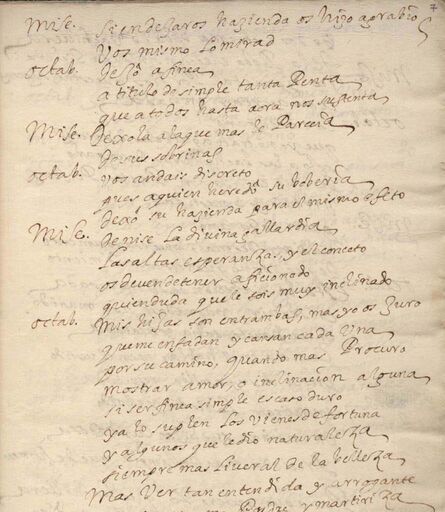 7
Mise. si en dejaros hazienda os hizo agrabio
vos mismo lo mirad
octab. dejó a finea
a titulo de simple tanta Renta
que a todos hasta aora nos sustenta
Mise. dexola a la que mas le Parecia
de sus sobrinas
octab. vos andais discreto
pues a quien heredó su boberia
dexó su hazienda para el mismo efeto
Mise. de nise la divina gallardia
las altas esperanzas, y el conceto
os deven de tener aficionado
quien duda que le sois muy inclinado
octab. Mis hijas son entrambas, mas yo os Juro
que me enfadan y cansan cada Una
por su camino, quando mas Procuro
mostrar amor, o inclinacion alguna
si ser finea simple es caso duro
ya lo suplen Los vienes de fortuna
y algunos que le dio naturaleza
siempre mas liveral de la belleza
Mas Ver tan entendida y arrogante
Padre y martiriza